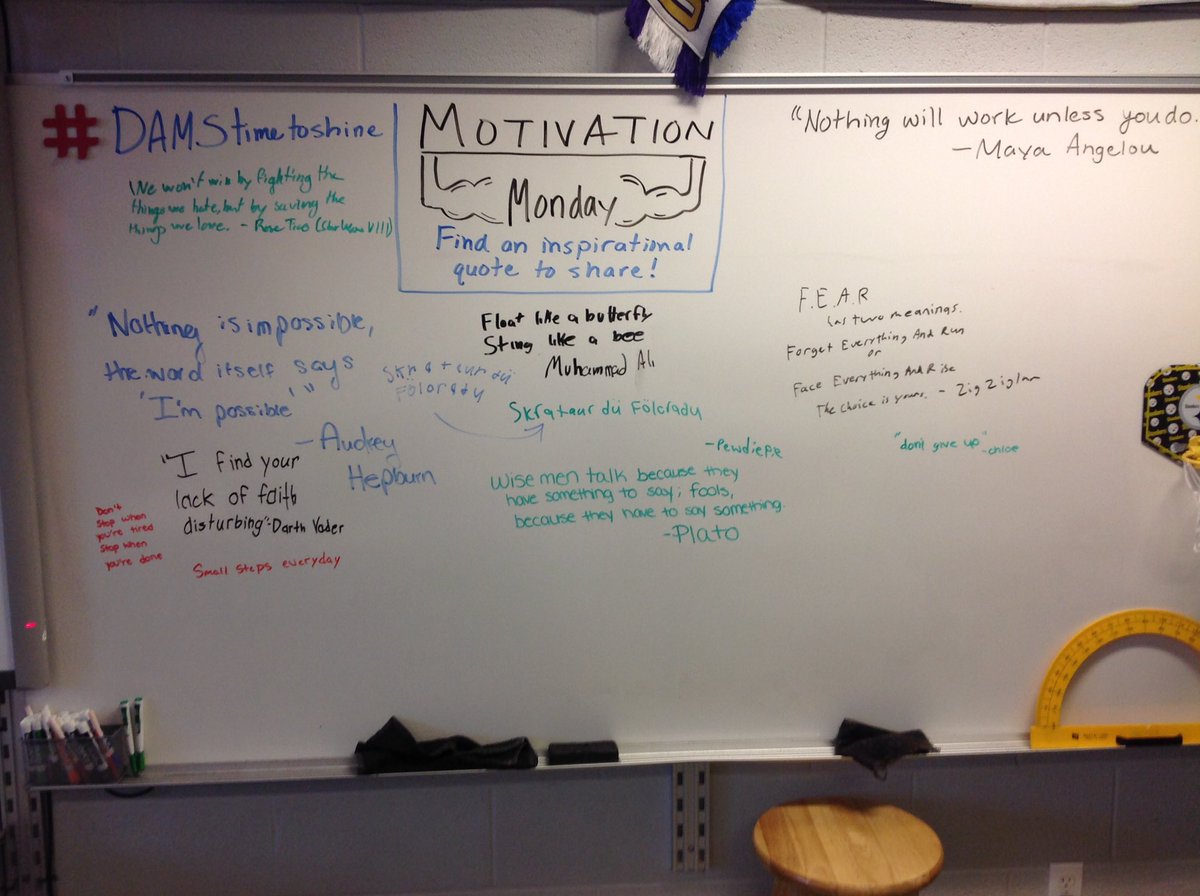 #DAMStimetoshine
We won't win by fighting the
things we hate, but by saving the
things we love. - Rose Tico (Star Wars VIII)
MOTIVATION
Monday
Find an inspirational
quote to share!
"Nothing will work unless you do.
- Maya Angelou
"Nothing is impossible,
the word itself says
'I'm possible'"
- Audrey
Hepburn
Float like a butterfly
Sting like a bee
Muhammad Ali
Skrataur dü
Fölcrady
Skrataur dü Fölcradu
- Pewdiepie
F.E.A.R
has two meanings.
Forget Everything And Run
or
Face Everything And Rise
The choice is yours. - Zig Ziglar
"don't give up"
- chloe
"I find your
lack of faith
disturbing" - Darth Vader
Wise men talk because they
have something to say; fools,
because they have to say something.
- Plato
Don't
Stop when
you're tired
Stop when
you're done
Small steps everyday